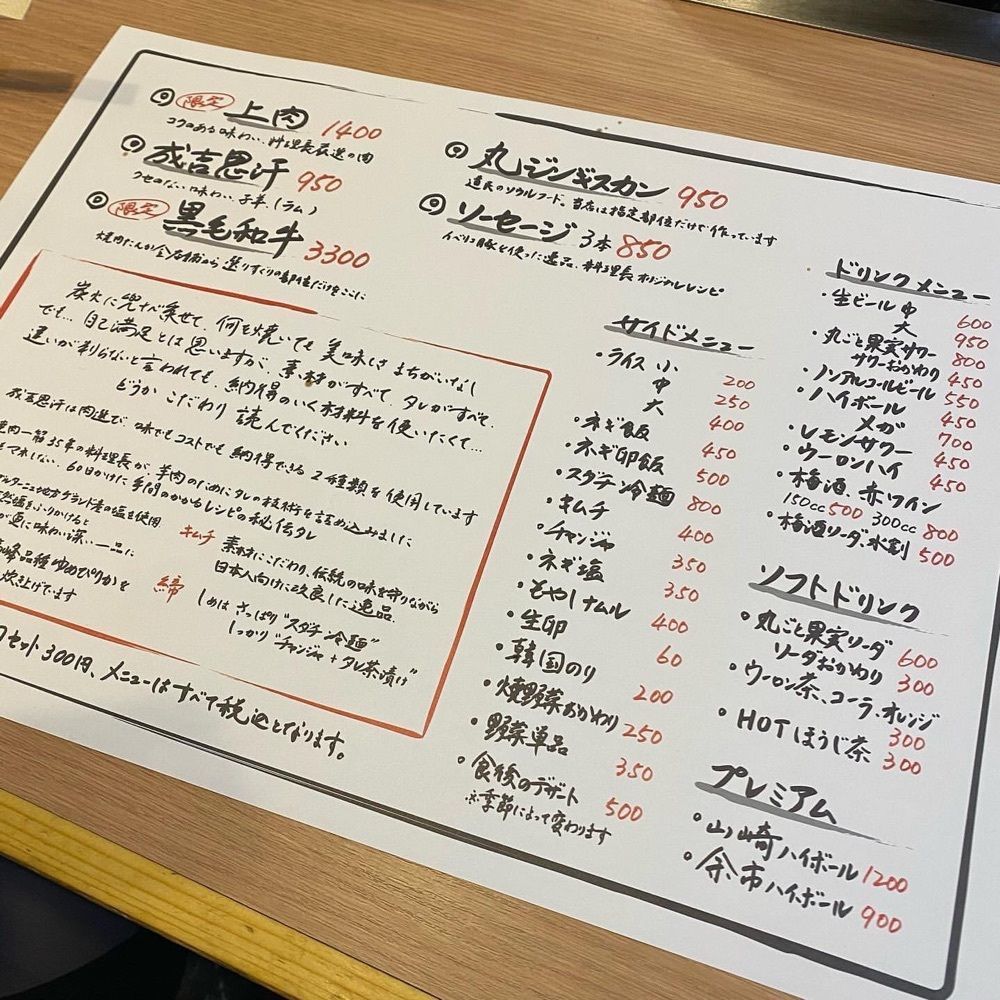 限定 上肉 1400
コクのある味わい、料理長厳選の肉
成吉思汗 950
クセのない味わい、子羊(ラム)
限定 黒毛和牛 3300
丸ジンギスカン 950
道民のソウルフード。当店は指定部位だけで作っています
ソーセージ 3本 850
イベリコ豚を使った逸品、料理長オリジナルレシピ
炭火に兜なべ乗せて、何を焼いても美味しさまちがいなし
でも…自己満足とは思いますが、素材がすべて、タレがすべて、
違いが判らないと言われても、納得のいく材料を使いたくて…
どうかこだわり読んでください
成吉思汗は肉選びで、味でもコストでも納得できる2種類を使用しています
焼肉一筋35年の料理長が、羊肉のためにタレの技術を詰め込みました
マネしない、60日かけた手間のかかるレシピの秘伝タレ
地方ゲランド産の塩を使用
塩をふりかけると
が更に味わい深い一品に
峰品種ゆめぴりかを
炊き上げてます
キムチ 素材にこだわり、伝統の味を守りながら
日本人向けに改良した逸品、
締 しめは さっぱり"スダチ冷麺"
しっかり"チャンジャ+タレ茶漬け"
セット300円、メニューはすべて税込となります。
サイドメニュー
・ライス 小 200
中 250
大 400
・ネギ飯 450
・ネギ卵飯 500
・スダチ冷麺 800
・キムチ 400
・チャンジャ 350
・ネギ塩 350
・もやしナムル 400
・生卵 60
・韓国のり 200
・焼野菜おかわり 250
・野菜単品 350
・食後のデザート 500
※季節によって変わります
ドリンクメニュー
・生ビール 中 600
大 950
・丸ごと果実サワー 800
サワーおかわり 450
・ノンアルコールビール 550
・ハイボール 450
メガ 700
・レモンサワー 450
・ウーロンハイ 450
・梅酒、赤ワイン
150cc 500 300cc 800
・梅酒ソーダ、水割 500
ソフトドリンク
・丸ごと果実ソーダ 600
ソーダおかわり 300
・ウーロン茶、コーラ、オレンジ 300
・HOTほうじ茶 300
プレミアム
・山崎ハイボール 1200
・余市ハイボール 900